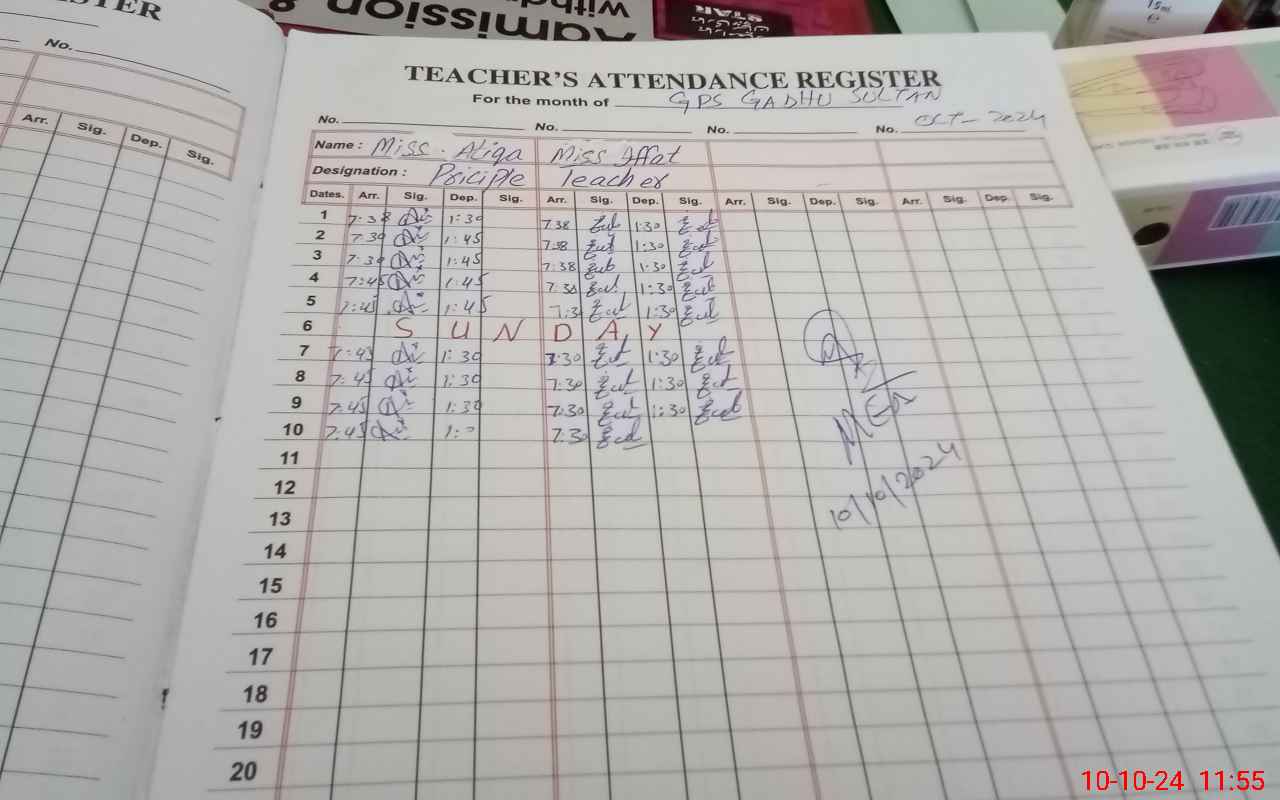 Admission &
STAR
15ml
e
ISTER
No.
Arr. Sig. Dep. Sig.
TEACHER'S ATTENDANCE REGISTER
For the month of GPS GADHU SULTAN
OCT - 2024
No. No. No. No.
Name : Miss. Atiqa Miss Iffat
Designation : Priciple Teacher
Dates. Arr. Sig. Dep. Sig. Arr. Sig. Dep. Sig. Arr. Sig. Dep. Sig. Arr. Sig. Dep. Sig.
1 7:38 1:30 7:38 1:30
2 7:30 1:45 7:38 1:30
3 7:30 1:45 7:38 1:30
4 7:45 1:45 7:30 1:30
5 7:45 1:45 7:3 1:30
6 SUNDAY
7 7:45 1:30 7:30 1:30
8 7:45 1:30 7:30 1:30
9 7:45 1:30 7:30 1:30
10 7:45 7:30
MEA
10/10/2024
11
12
13
14
15
16
17
18
19
20
10-10-24 11:55